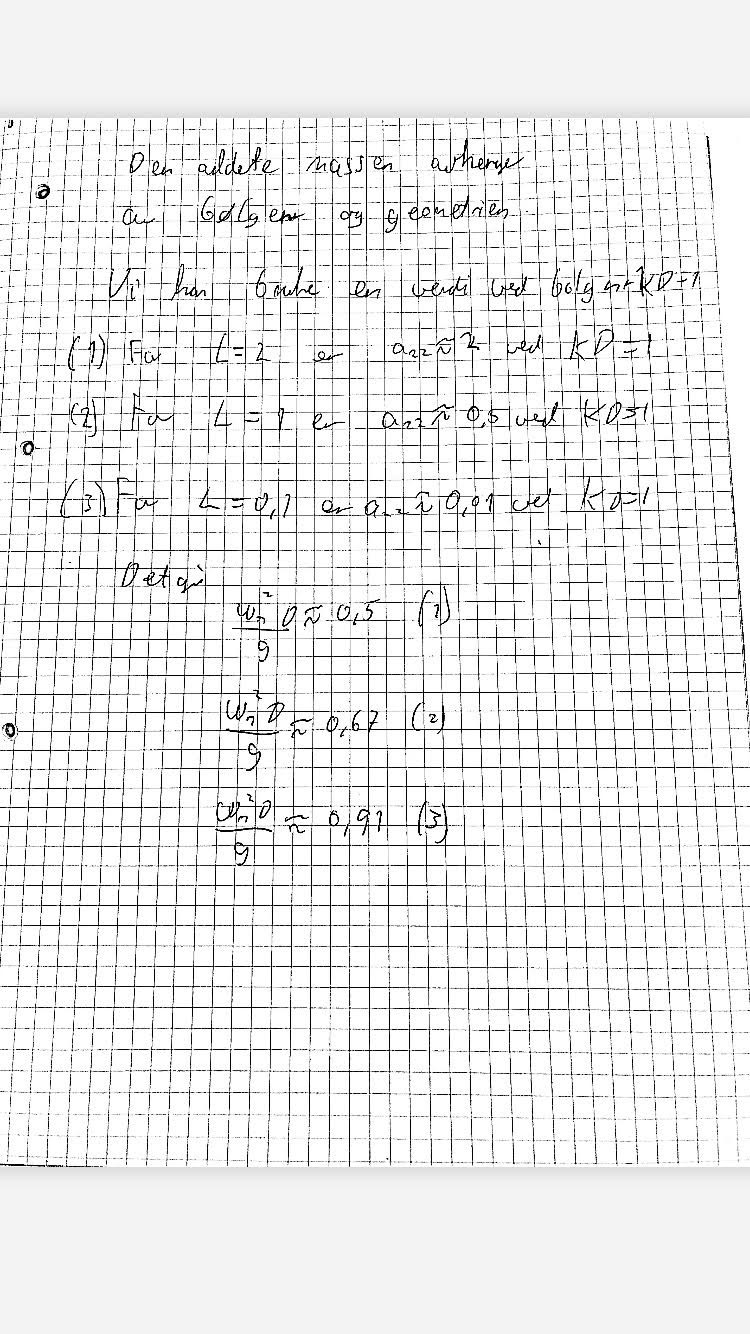 Den addete massen avhenger
av bølgen og geometrien
Vi kan bruke en verdi ved bølgenr KD=1
(1) For L=2 er a₂₂≈2 ved KD=1
(2) For L=1 er a₂₂≈0,5 ved KD=1
(3) For L=0,1 er a₂₂≈0,01 ved KD=1
Det gir
ωₙ²D/g ≈ 0,5 (1)
ωₙ²D/g ≈ 0,67 (2)
ωₙ²D/g ≈ 0,91 (3)